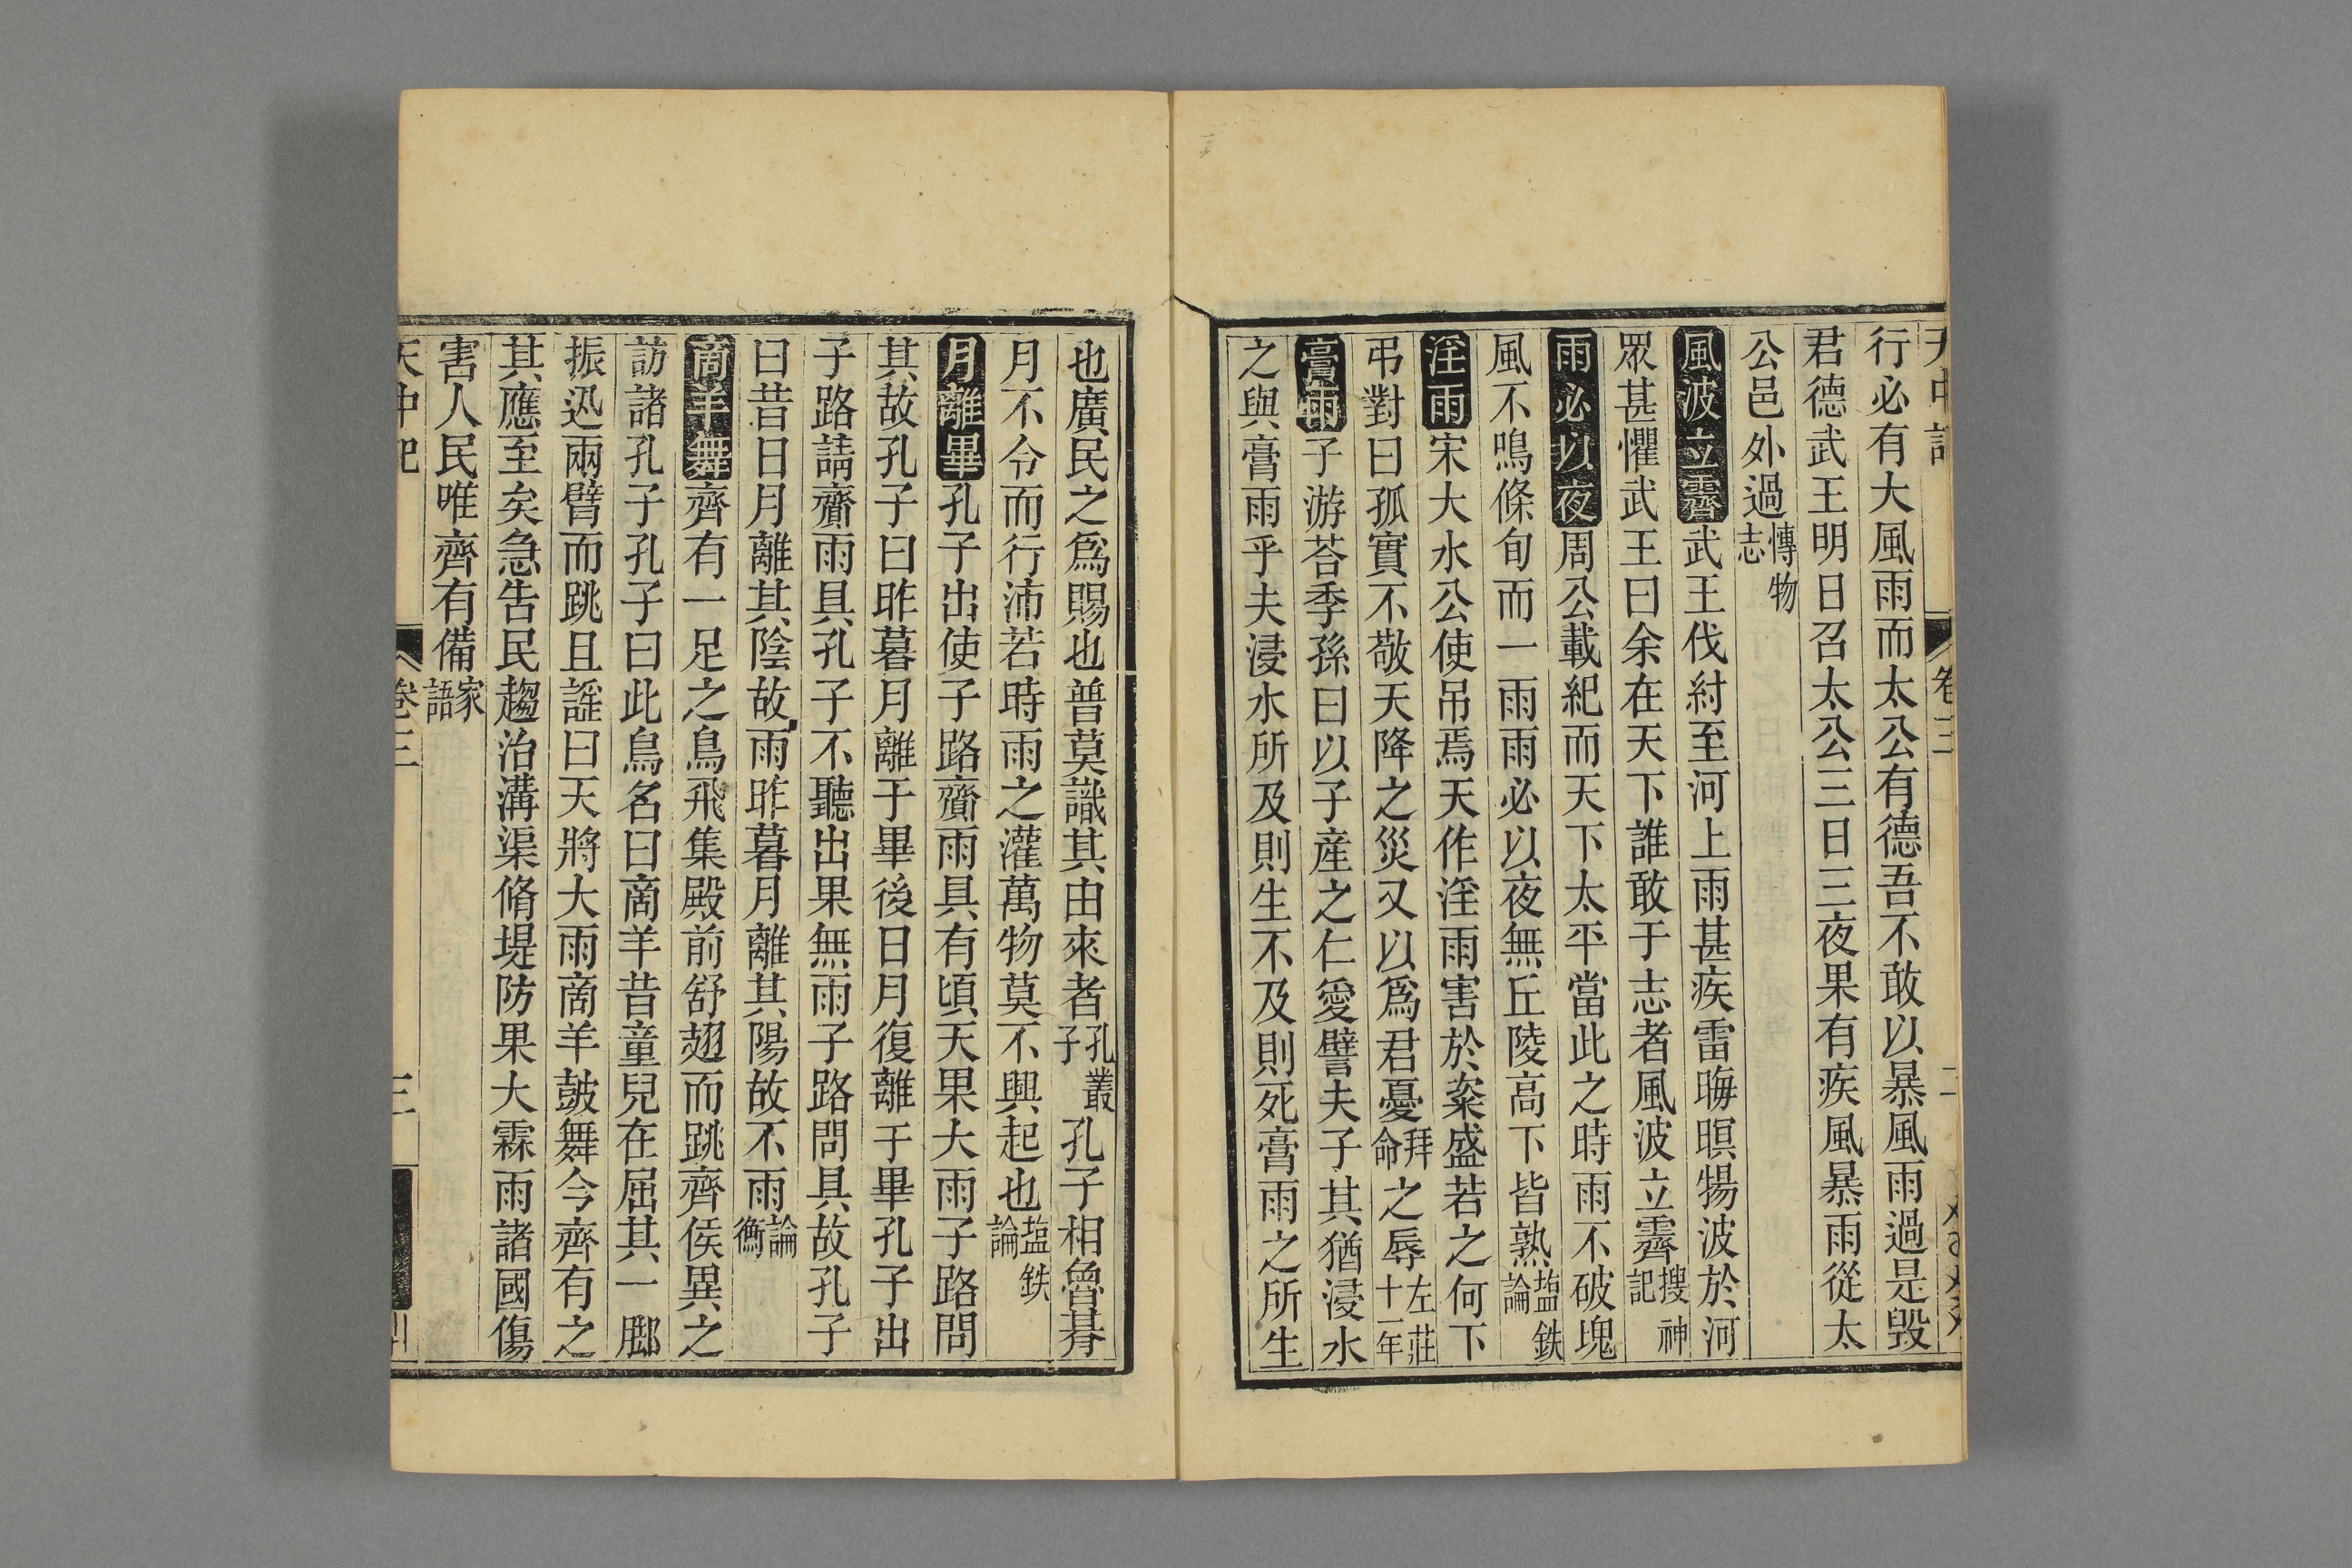 行必有大風雨而太公有德吾不敢以暴風雨過是毀
君德武王明日召太公三日三夜果有疾風暴雨從太
公邑外過愽物志
風波立霽武王伐紂至河上雨甚疾雷晦暝暢波於河
眾甚懼武王曰余在天下誰敢于志者風波立霽搜神記
雨必以夜周公載紀而天下太平當此之時雨不破塊
風不鳴條旬而一雨雨必以夜無丘陵高下皆熟塩鉄論
淫雨宋大水公使吊焉天作淫雨害於粢盛若之何下
弔對曰孤實不敬天降之災又以爲君憂拜命之辱左莊十一年
膏雨子游荅季孫曰以子產之仁愛譬夫子其猶浸水
之與膏雨乎夫浸水所及則生不及則死膏雨之所生
也廣民之爲賜也普莫識其由來者孔叢子孔子相魯朞
月不令而行沛若時雨之灌萬物莫不興起也塩鉄論
月離畢孔子出使子路齎雨具有頃天果大雨子路問
其故孔子曰昨暮月離于畢後日月復離于畢孔子出
子路請齎雨具孔子不聽出果無雨子路問其故孔子
曰昔日月離其陰故雨昨暮月離其陽故不雨論衡
商羊舞齊有一足之鳥飛集殿前舒翅而跳齊侯異之
訪諸孔子孔子曰此鳥名曰商羊昔童兒在屈其一脚
振迅兩臂而跳且謡曰天將大雨商羊鼓舞今齊有之
其應至矣急告民趨治溝渠脩堤防果大霖雨諸國傷
害人民唯齊有備家語
天中記 卷三 三